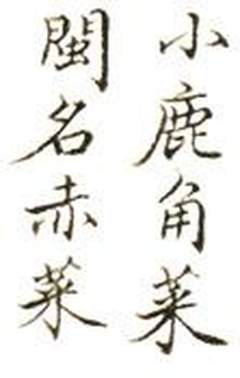 小鹿角菜
閩名赤菜